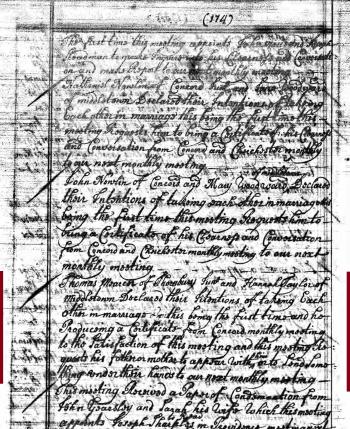 (174)
The first time this meeting appoints John and Joseph
to make Enquiry his Clearness and Conversati
on and make Report to our next monthly meeting
Nathaniel Newlin of Concord and Jane Woodward
of middletown Declared their Intentions of taking
each other in marriage this being the first time this
meeting Requests him to bring a Certificate of his Clearness
and Conversation from Concord and Chichester monthly
to our next monthly meeting
John Newlin of Concord and Mary Woodward Declared
their Intentions of taking each other in marriage this
being the first time this meeting Requests him to
bring a Certificate of his Clearness and Conversation
from Concord and Chichester monthly meeting to our next
monthly meeting
Thomas Mercer of Thornbury Junr and Hannah Taylor of
Middletown Declared their Intentions of taking Each
other in marriage this being the first time and he
Producing a Certificate from Concord monthly meeting
to the Satisfaction of this meeting and this meeting Re
quests his father & mother to appear with him or to Send Some
thing under their hands to our next monthly meeting
This meeting Received a Paper of Condemnation from
John Yearsley and Sarah his wife which this meeting
appoints Joseph Sharples